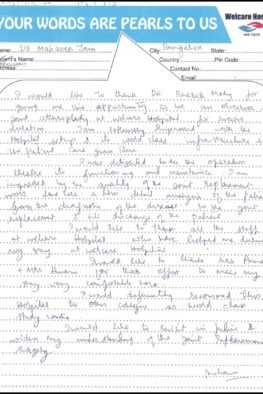 YOUR WORDS ARE PEARLS TO US
Welcare Hos
we care
Name: Dr Mahaveer Jain
City: Bangalore State:
Patient's Name
Country: Pin Code:
Address:
Contact No :
Email :
I would like to thank Dr Bharat Mody for
giving me the opportunity to be an observer in
joint arthroplasty at Welcare Hospital for
duration I am extremely impressed with the
Hospital setup & its world class infrastructure &
the patient care given here
I was delighted to see the operation
theatre its functioning and maintenance I am
impressed by the quality of the joint replacement
work done here & the detail analysis of the patient
from the diagnosis of the disease to the joint
replacement & till discharge of the patient
I would like to thank all the staff
at Welcare Hospital who have helped me during
my stay at Welcare Hospital
I would like to thank Mrs
& Mrs for their effort to make my
stay very comfortable here
I would definitely recommend this
Hospital to other collegues as world class
study centre
I would like to revisit in future &
widen my understanding of the Joint Replacement
surgery